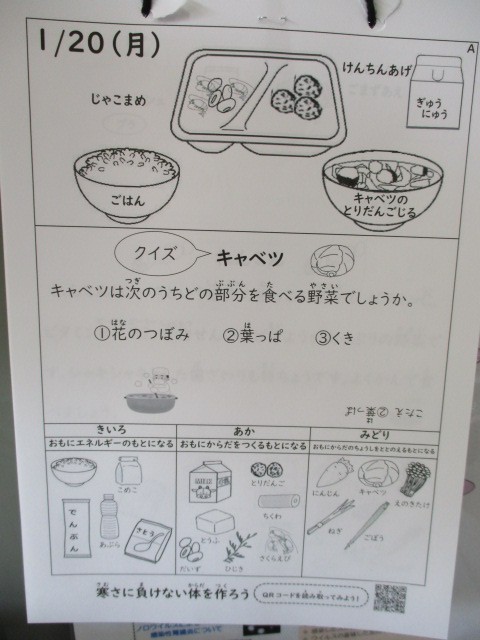 1/20(月)
A
じゃこまめ
けんちんあげ
ぎゅう
にゅう
ごはん
キャベツの
とりだんごじる
クイズ
キャベツ
キャベツは次のうちどの部分を食べる野菜でしょうか。
つぎ ぶぶん た やさい
①花のつぼみ ②葉っぱ ③くき
はな は
こたえ ②葉っぱ
は
きいろ
おもにエネルギーのもとになる
あか
おもにからだをつくるもとになる
みどり
おもにからだのちょうしをととのえるもとになる
こめこ
でんぷん
あぶら
さとう
とりだんご
ちくわ
とうふ
だいず
ひじき
さくらえび
にんじん
キャベツ
えのきたけ
ねぎ
ごぼう
寒さに負けない体を作ろう
さむ ま からだ つく
QRコードを読み取ってみよう!